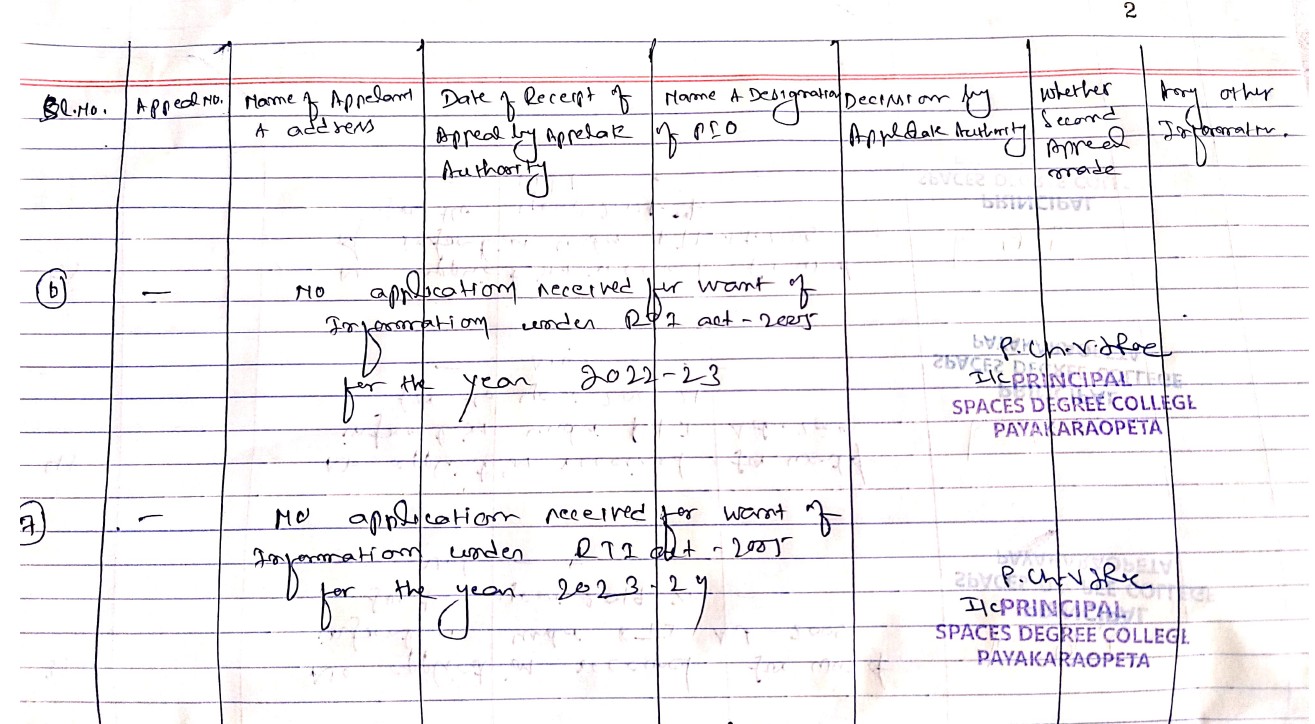 2
Sl.No. Appeal No. Name of Appelant & address Date of Receipt of Appeal by Appelate Authority Name & Designation of PIO Decission by Appelate Authority Whether Second Appeal made Any other Information.
6 — No application received for want of
Information under RTI act - 2005
for the year 2022-23
P. Ch. V.
I/c PRINCIPAL
SPACES DEGREE COLLEGE
PAYAKARAOPETA
7 — No application received for want of
Information under RTI act - 2005
for the year 2023-24
P. Ch. V
I/c PRINCIPAL
SPACES DEGREE COLLEGE
PAYAKARAOPETA